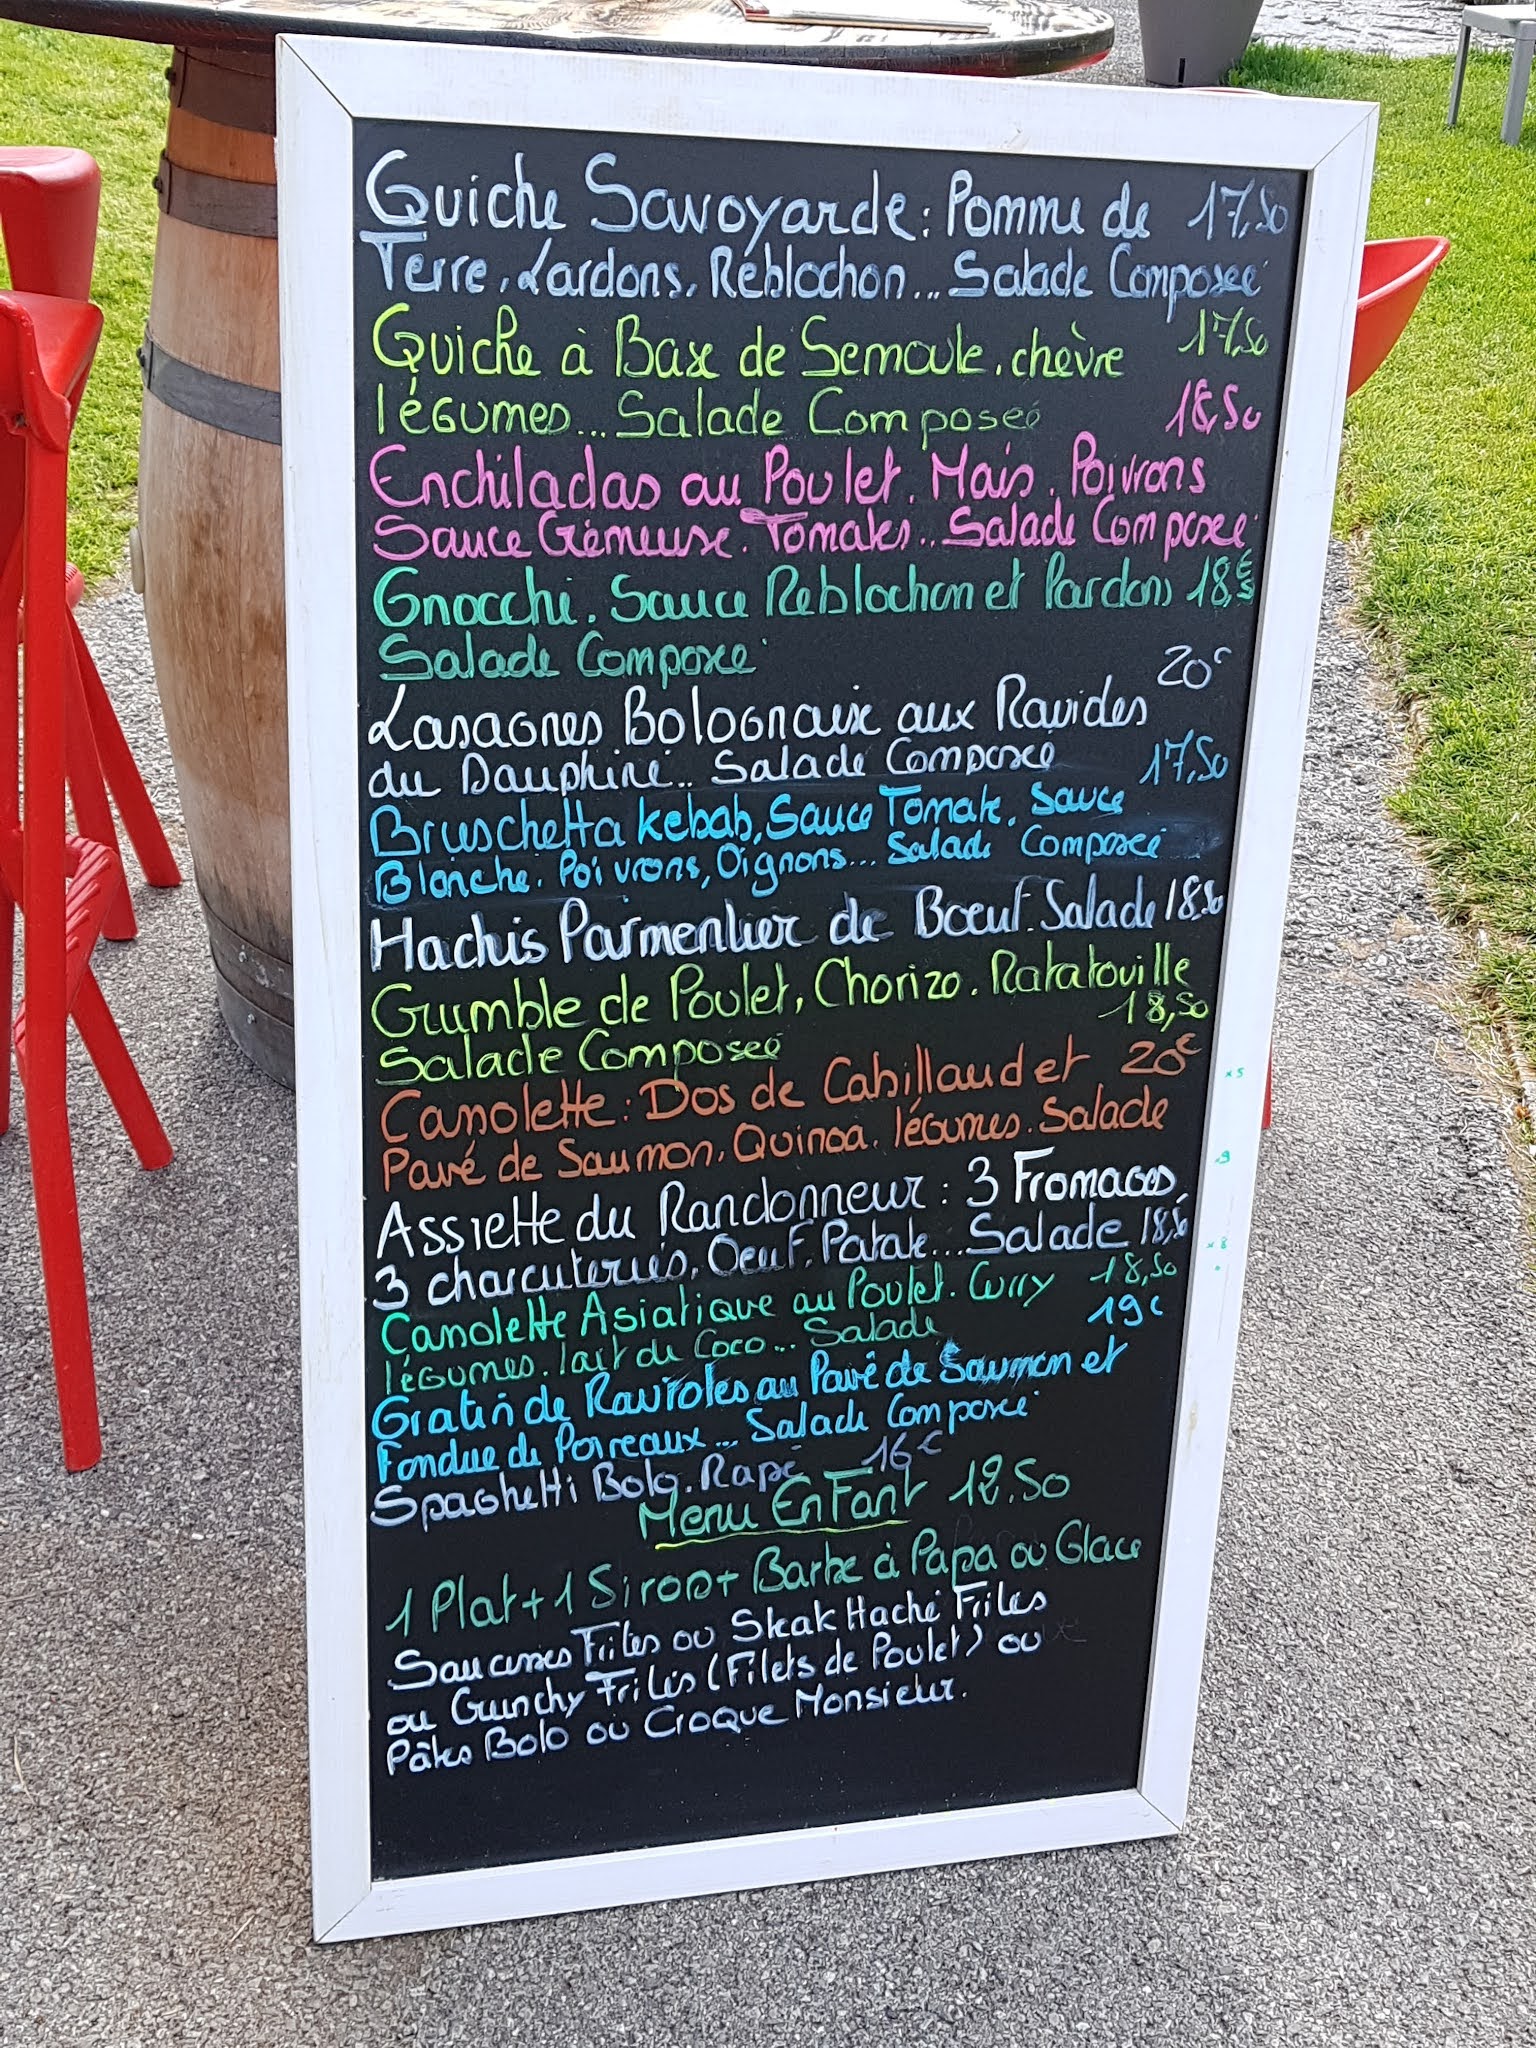 Quiche Savoyarde : Pomme de 17,50
Terre, Lardons, Reblochon... Salade Composée
Quiche à Base de Semoule, chèvre 17,50
légumes... Salade Composée 18,50
Enchiladas au Poulet, Maïs, Poivrons
Sauce Crémeuse, Tomates... Salade Composée
Gnocchi, Sauce Reblochon et Lardons 18,5€
Salade Composée
20€
Lasagnes Bolognaise aux Ravioles
du Dauphiné... Salade Composée 17,50
Bruschetta kebab, Sauce Tomate, Sauce
Blanche, Poivrons, Oignons... Salade Composée
Hachis Parmentier de Boeuf. Salade 18,50
Crumble de Poulet, Chorizo, Ratatouille
18,50
Salade Composée
Cassolette : Dos de Cabillaud et 20€
Pavé de Saumon, Quinoa, légumes. Salade
Assiette du Randonneur : 3 Fromages,
3 charcuteries, Oeuf, Patate... Salade 18,50
Cassolette Asiatique au Poulet, Curry 18,50
légumes, lait de Coco... Salade 19€
Gratin de Ravioles au Pavé de Saumon et
Fondue de Poireaux... Salade Composée
Spaghetti Bolo. Rapé 16€
Menu Enfant 12.50
1 Plat + 1 Sirop + Barbe à Papa ou Glace
Saucisses Frites ou Steak Haché Frites
ou Crunchy Frites (Filets de Poulet) ou
Pâtes Bolo ou Croque Monsieur.